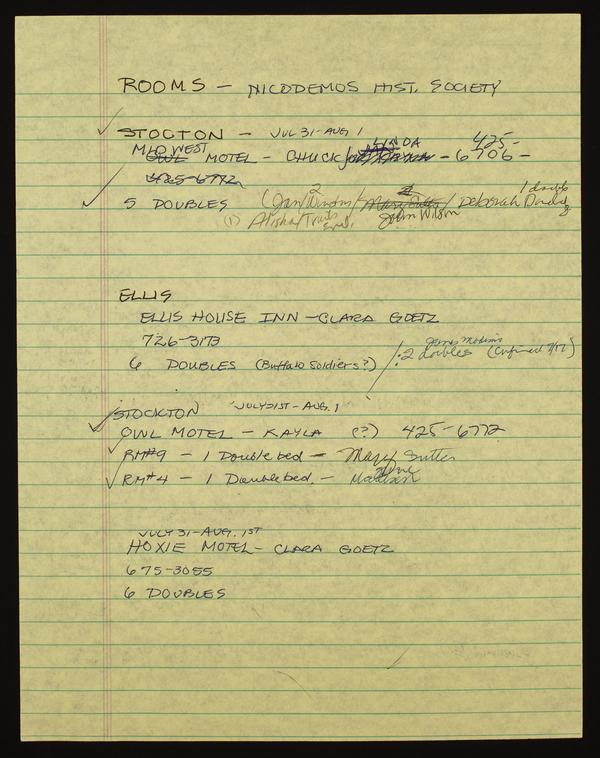 ROOMS - NICODEMOS HIST. SOCIETY
STOCTON - JUL 31-AUG 1
MIDWEST LINDA 425-
OWL MOTEL - CHUCK - 6706 -
425-6772
5 DOUBLES (Jan 2 / Mary Sutter / Deborah 1 double
(1) Alisha/Travis John Wilson
ELLIS
ELLIS HOUSE INN - CLARA GOETZ
726-3173
6 DOUBLES (Buffalo Soldiers?) / 2 doubles (Confirmed
STOCKTON JULY 31ST - AUG. 1
OWL MOTEL - KAYLA (?) 425-6772
RM#9 - 1 Double bed - Mary Sutter
RM#4 - 1 Double bed. - Madison
JULY 31-AUG. 1ST
HOXIE MOTEL - CLARA GOETZ
675-3055
6 DOUBLES